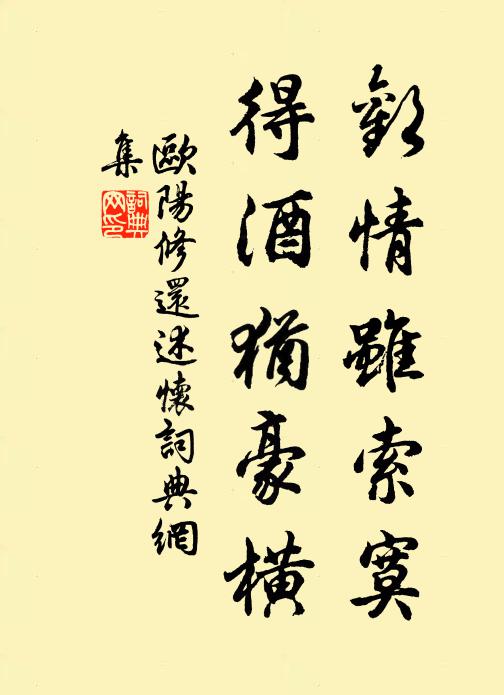 歡情雖索寞
得酒猶豪橫
歐陽修還述懷詞典網
集
詞典網印